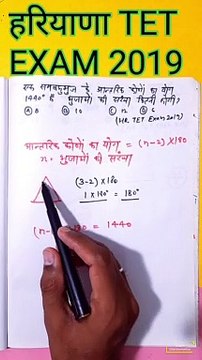 हरियाणा TET
EXAM 2019
एक समबहुभुज के आन्तरिक कोणों का योग
1440° है भुजाओं की संख्या कितनी होगी?
Ⓐ 8 Ⓑ 10 Ⓒ 12 Ⓓ 6
(HR TET Exam 2019)
आन्तरिक कोणों का योग = (n-2)×180
n = भुजाओं की संख्या
(3-2)×180
1×180° = 180°
(n- 180 = 1440